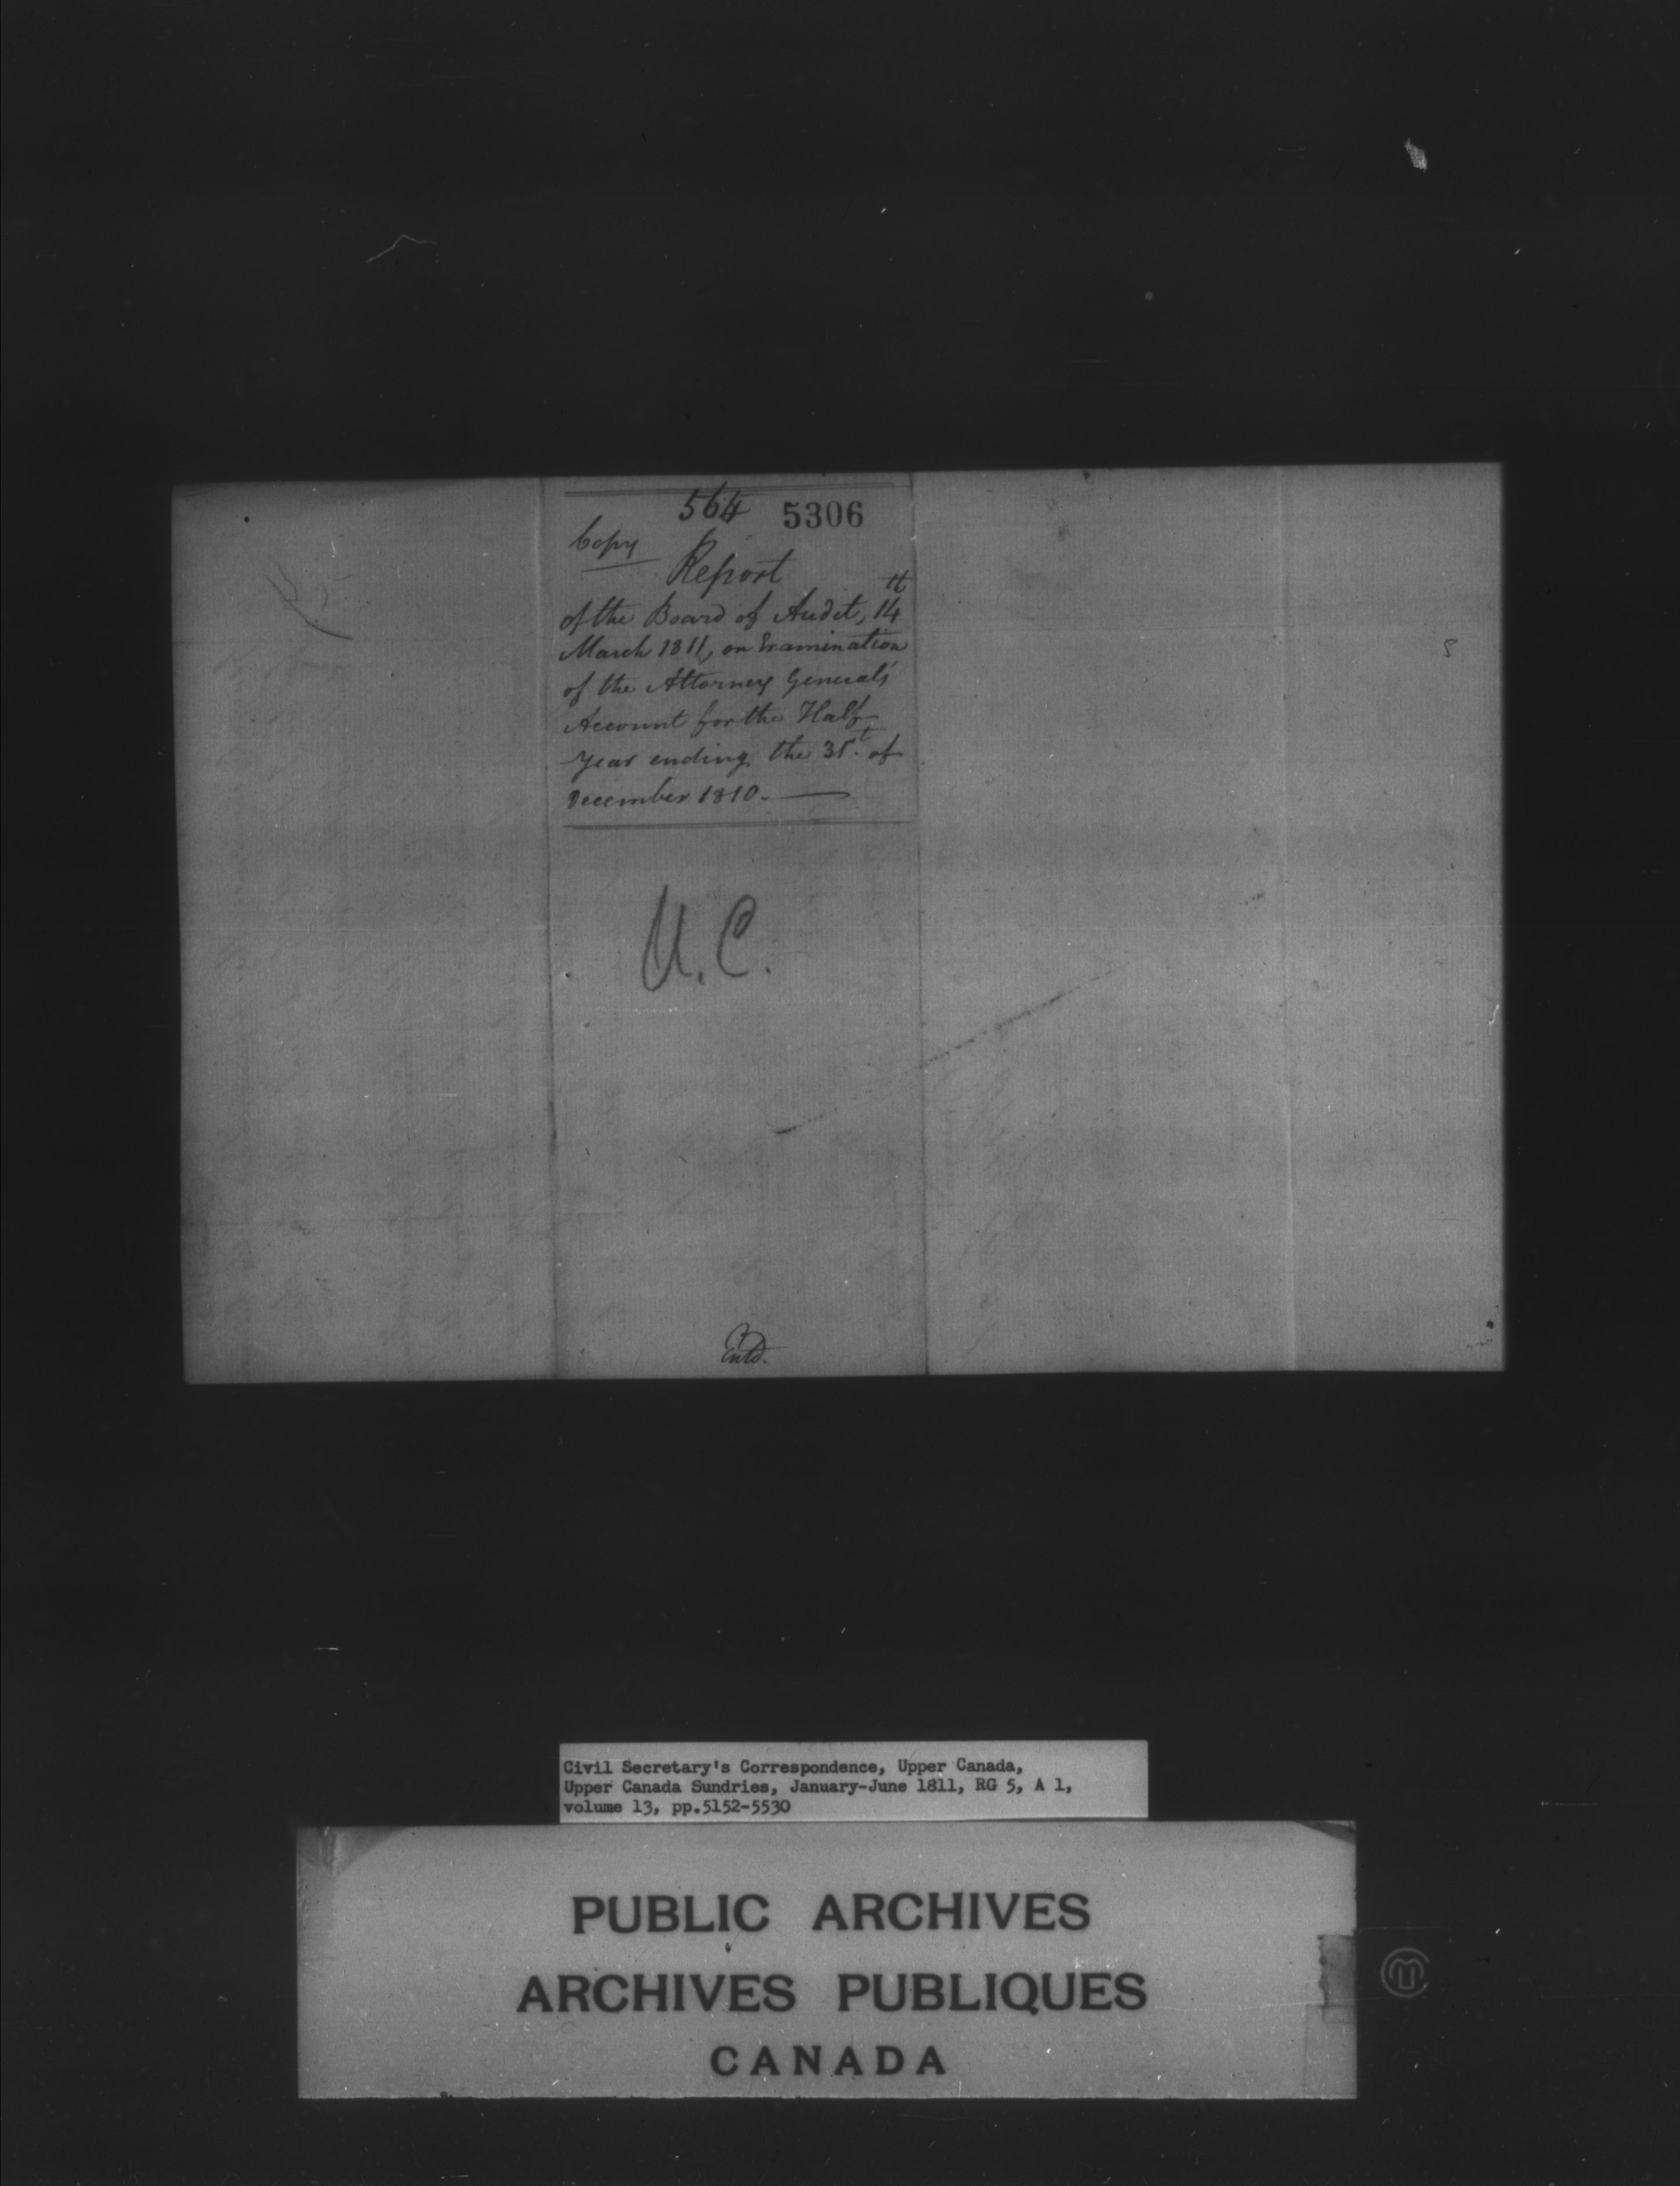 564 5306
Copy
Report
of the Board of Audit, 14th
March 1811, on Examination
of the Attorney General's
Account for the Half
Year ending the 31st. of
December 1810.
U.C.
Entd.
Civil Secretary's Correspondence, Upper Canada,
Upper Canada Sundries, January-June 1811, RG 5, A 1,
volume 13, pp.5152-5530
PUBLIC ARCHIVES
ARCHIVES PUBLIQUES
CANADA